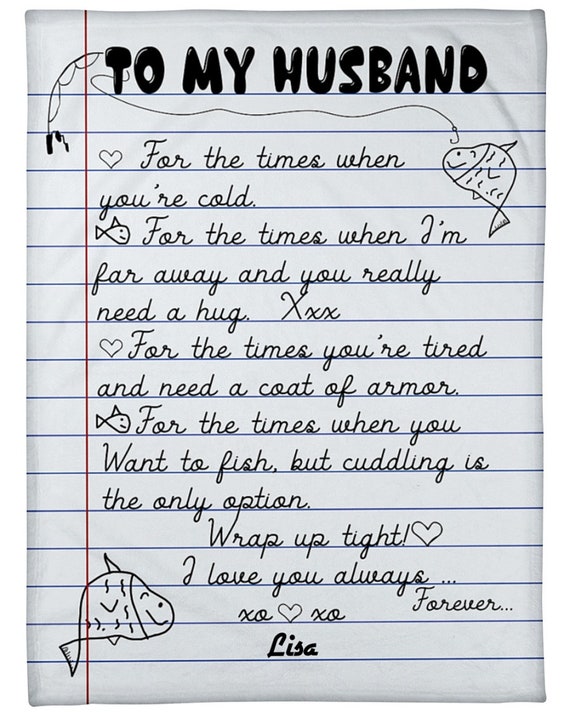 TO MY HUSBAND
For the times when
you're cold.
For the times when I'm
far away and you really
need a hug. Xxx
For the times you're tired
and need a coat of armor.
For the times when you
Want to fish, but cuddling is
the only option.
Wrap up tight!
I love you always ...
Forever...
xo xo
Lisa